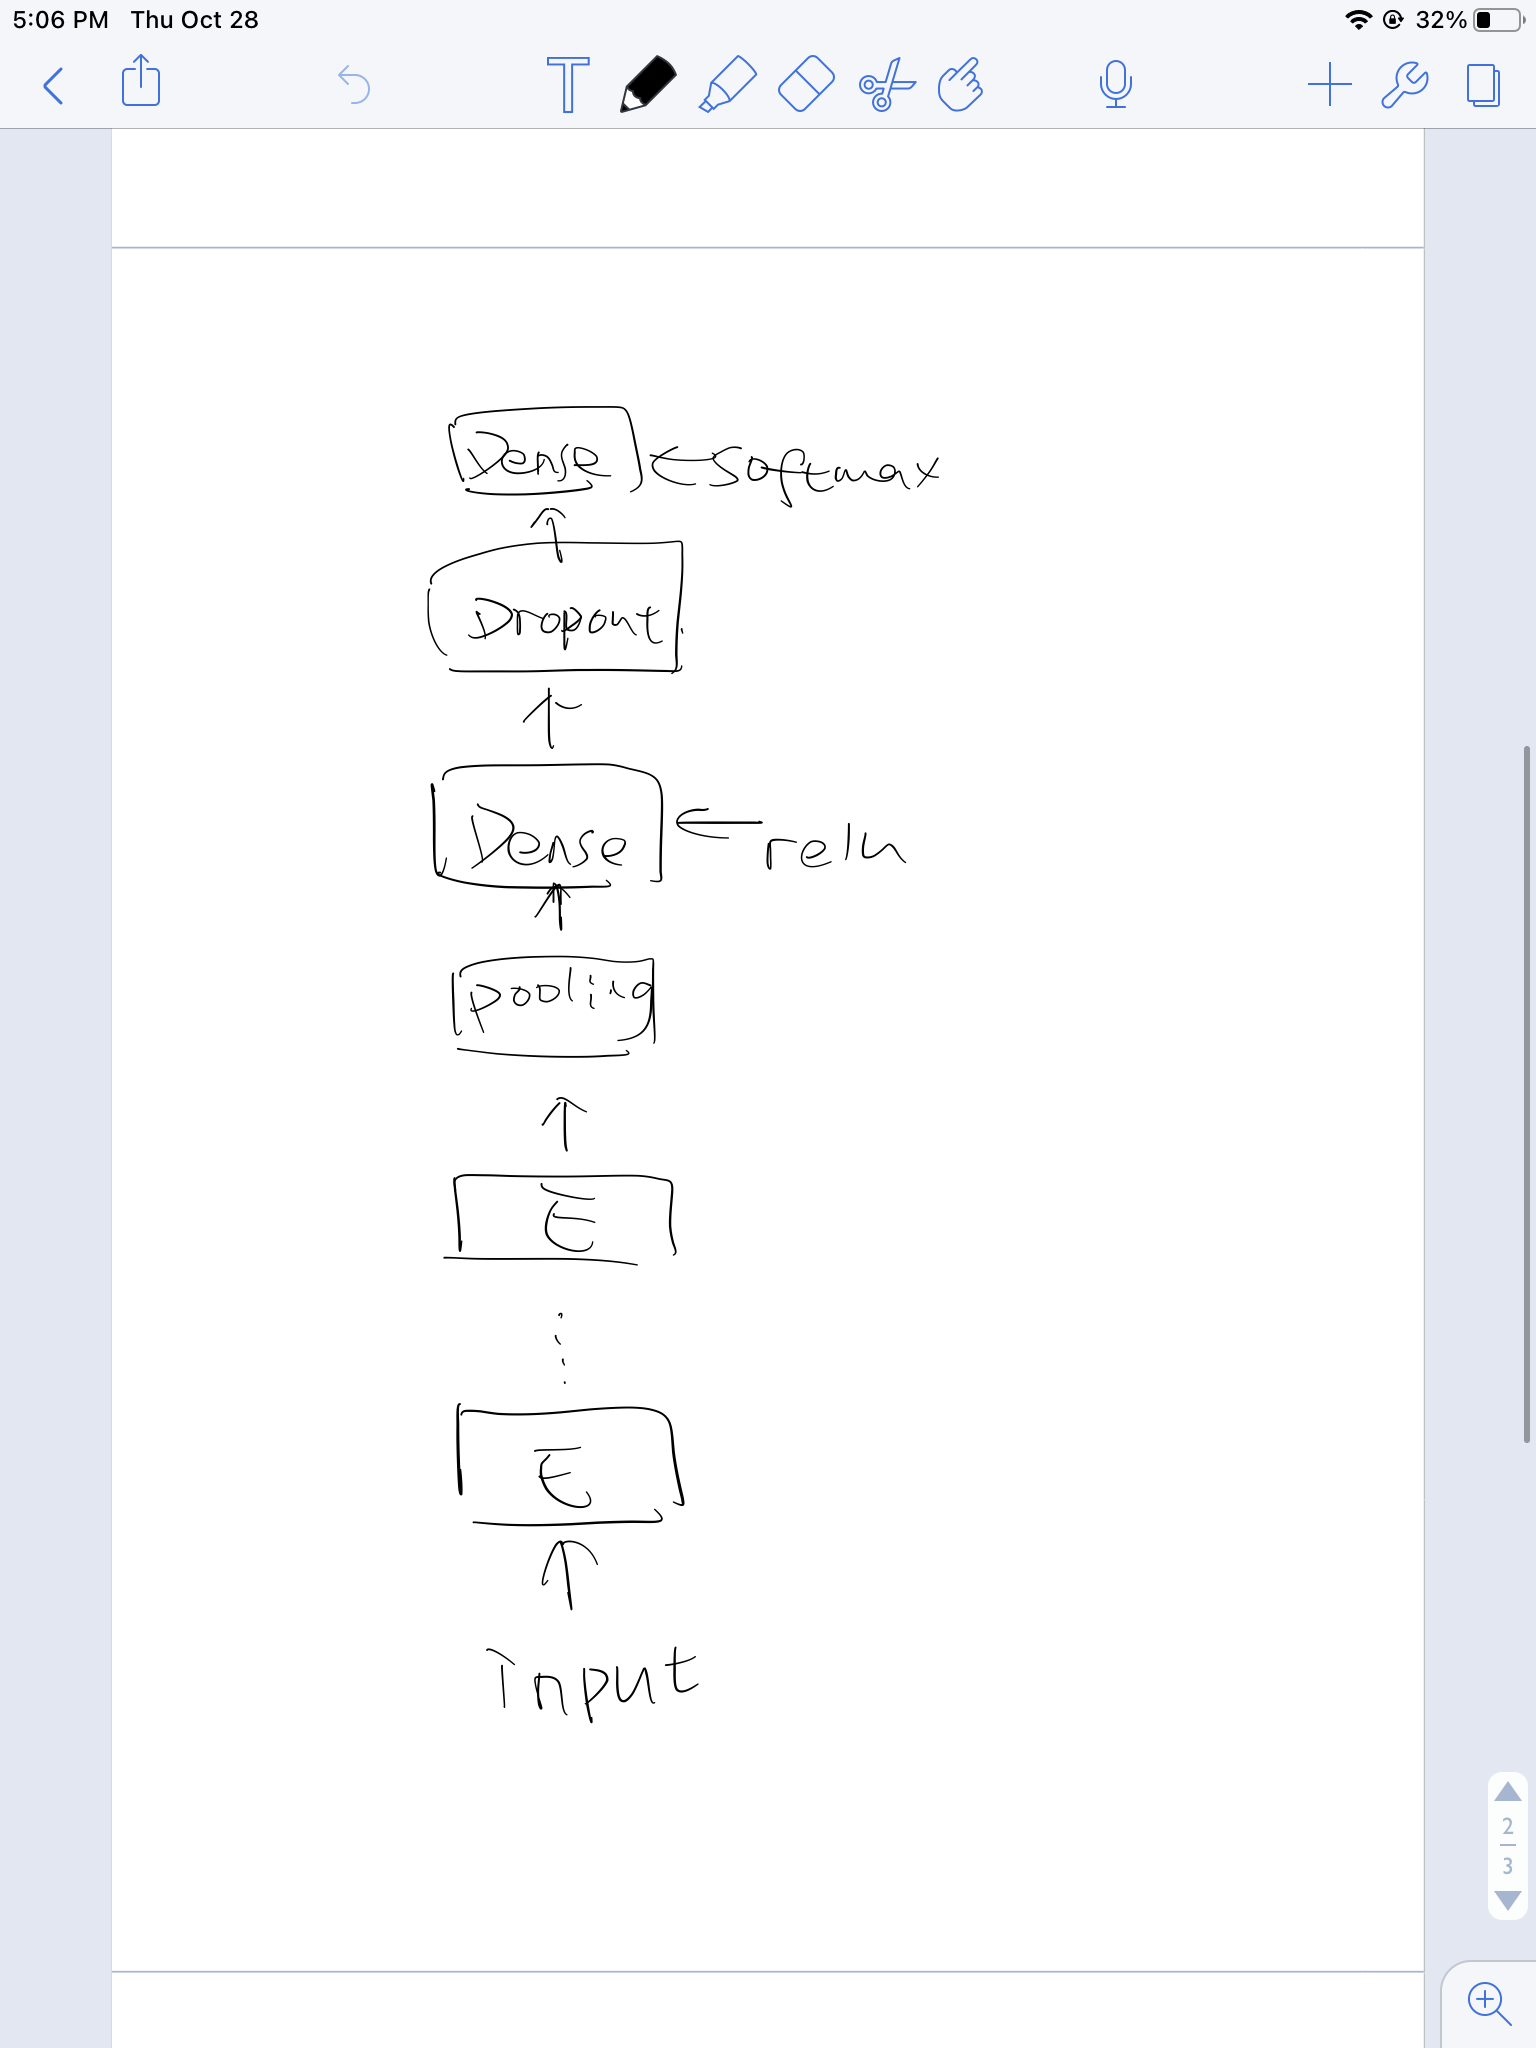 5:06 PM Thu Oct 28
32%
T
Dense
softmax
Dropout
Dense
relu
pooling
E
E
input
2
3